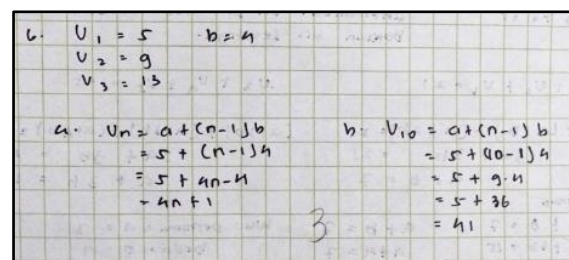 6. U1 = 5 b = 4
U2 = 9
U3 = 13
a. Un = a + (n-1) b
= 5 + (n-1) 4
= 5 + 4n - 4
= 4n + 1
b. U10 = a + (n-1) b
= 5 + (10-1) 4
= 5 + 9.4
= 5 + 36
= 41
3